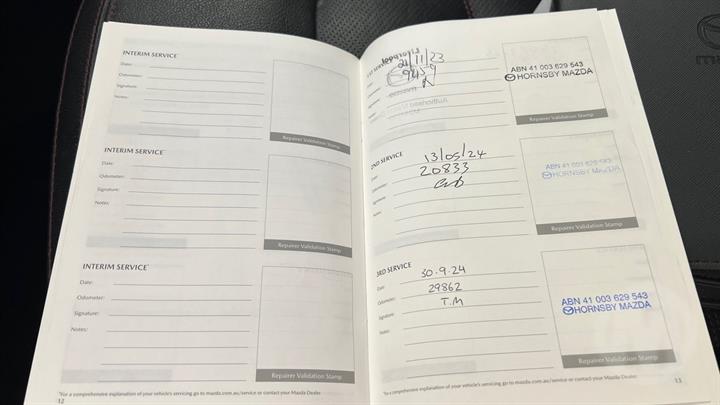 INTERIM SERVICE*
Date:
Odometer:
Signature:
Notes:
Repairer Validation Stamp
INTERIM SERVICE*
Date:
Odometer:
Signature:
Notes:
Repairer Validation Stamp
INTERIM SERVICE*
Date:
Odometer:
Signature:
Notes:
Repairer Validation Stamp
*For a comprehensive explanation of your vehicle's servicing go to mazda.com.au/service or contact your Mazda Dealer.
12
1ST SERVICE
21/11/23
ABN 41 003 629 543
HORNSBY MAZDA
Repairer Validation Stamp
2ND SERVICE
13/05/24
20833
Odometer:
Signature:
Notes:
ABN 41 003 629 543
HORNSBY MAZDA
Repairer Validation Stamp
3RD SERVICE
Date: 30.9.24
Odometer: 29862
Signature: T.M
Notes:
ABN 41 003 629 543
HORNSBY MAZDA
Repairer Validation Stamp
*For a comprehensive explanation of your vehicle's servicing go to mazda.com.au/service or contact your Mazda Dealer.
13